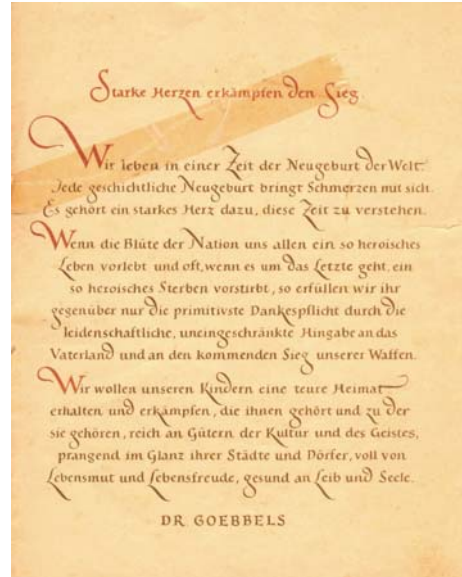 Starke Herzen erkämpfen den Sieg.
Wir leben in einer Zeit der Neugeburt der Welt.
Jede geschichtliche Neugeburt bringt Schmerzen mit sich.
Es gehört ein starkes Herz dazu, diese Zeit zu verstehen.
Wenn die Blüte der Nation uns allen ein so heroisches
Leben vorlebt und oft, wenn es um das Letzte geht, ein
so heroisches Sterben vorstirbt, so erfüllen wir ihr
gegenüber nur die primitivste Dankespflicht durch die
leidenschaftliche, uneingeschränkte Hingabe an das
Vaterland und an den kommenden Sieg unserer Waffen.
Wir wollen unseren Kindern eine teure Heimat
erhalten und erkämpfen, die ihnen gehört und zu der
sie gehören, reich an Gütern der Kultur und des Geistes,
prangend im Glanz ihrer Städte und Dörfer, voll von
Lebensmut und Lebensfreude, gesund an Leib und Seele.
DR. GOEBBELS